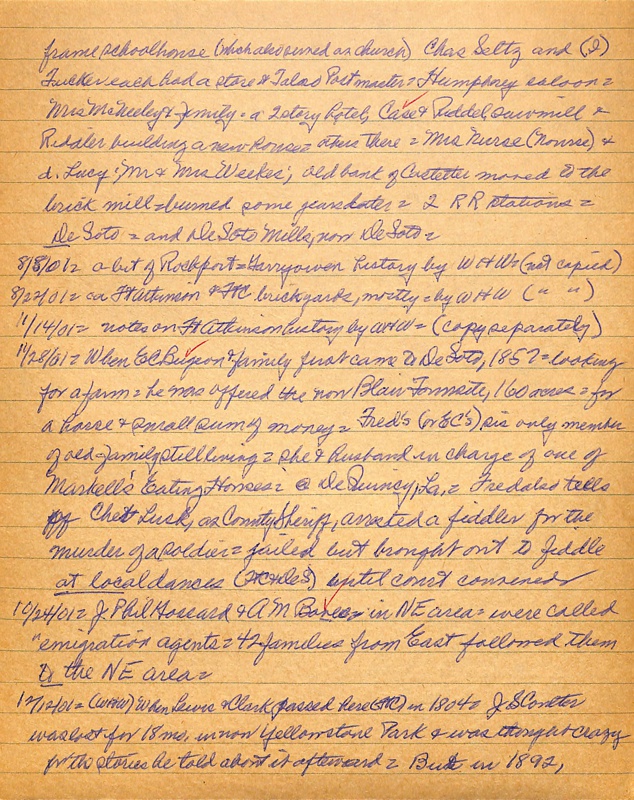 frame schoolhouse (which also served as church) Chas Seltz and (J)
Tucker each had a store & Tal also Postmaster = Humphrey saloon =
Mrs McNeeley & family = a 2 story hotel, Case & Riddel sawmill &
Riddler building a new house = others there = Mrs Nurse (Nourse) &
d. Lucy; Mr & Mrs Weekes; old bank of Costetter moved to the
brick mill = burned some years later = 2 RR stations =
De Soto = and De Soto Mills, now De Soto =
8/8/01 = a bit of Rockport = Garryowen history by WHW = (not copied)
8/22/01 = on Ft Atkinson & FtC brickyards, mostly = by WHW ( " " )
11/14/01 = notes on Ft Atkinson history by WHW = (copy separately)
11/28/01 = When EC & family first came to De Soto, 1857 = looking
for a farm = he was offered the now Blair Townsite, 160 acres = for
a horse & small sum of money = Fred's (or EC's) sis only member
of old family still living = she & husband in charge of one of
Markell's Eating Houses = @ De Quincy, La, = Fred also tells
of Chet Lusk, as County Sheriff, arrested a fiddler for the
murder of a soldier = jailed but brought out to fiddle
at local dances (FtC & DeS) until court convened
10/24/01 = J. Phil Hossard & A M in NE area = were called
"emigration agents = 42 families from East followed them
to the NE area =
12/12/01 = (WHW) When Lewis & Clark passed here (FtC) in 1804 J S Coulter
was lost for 18 mo, in now Yellowstone Park & was thought crazy
for the stories he told about it afterward = But in 1892,